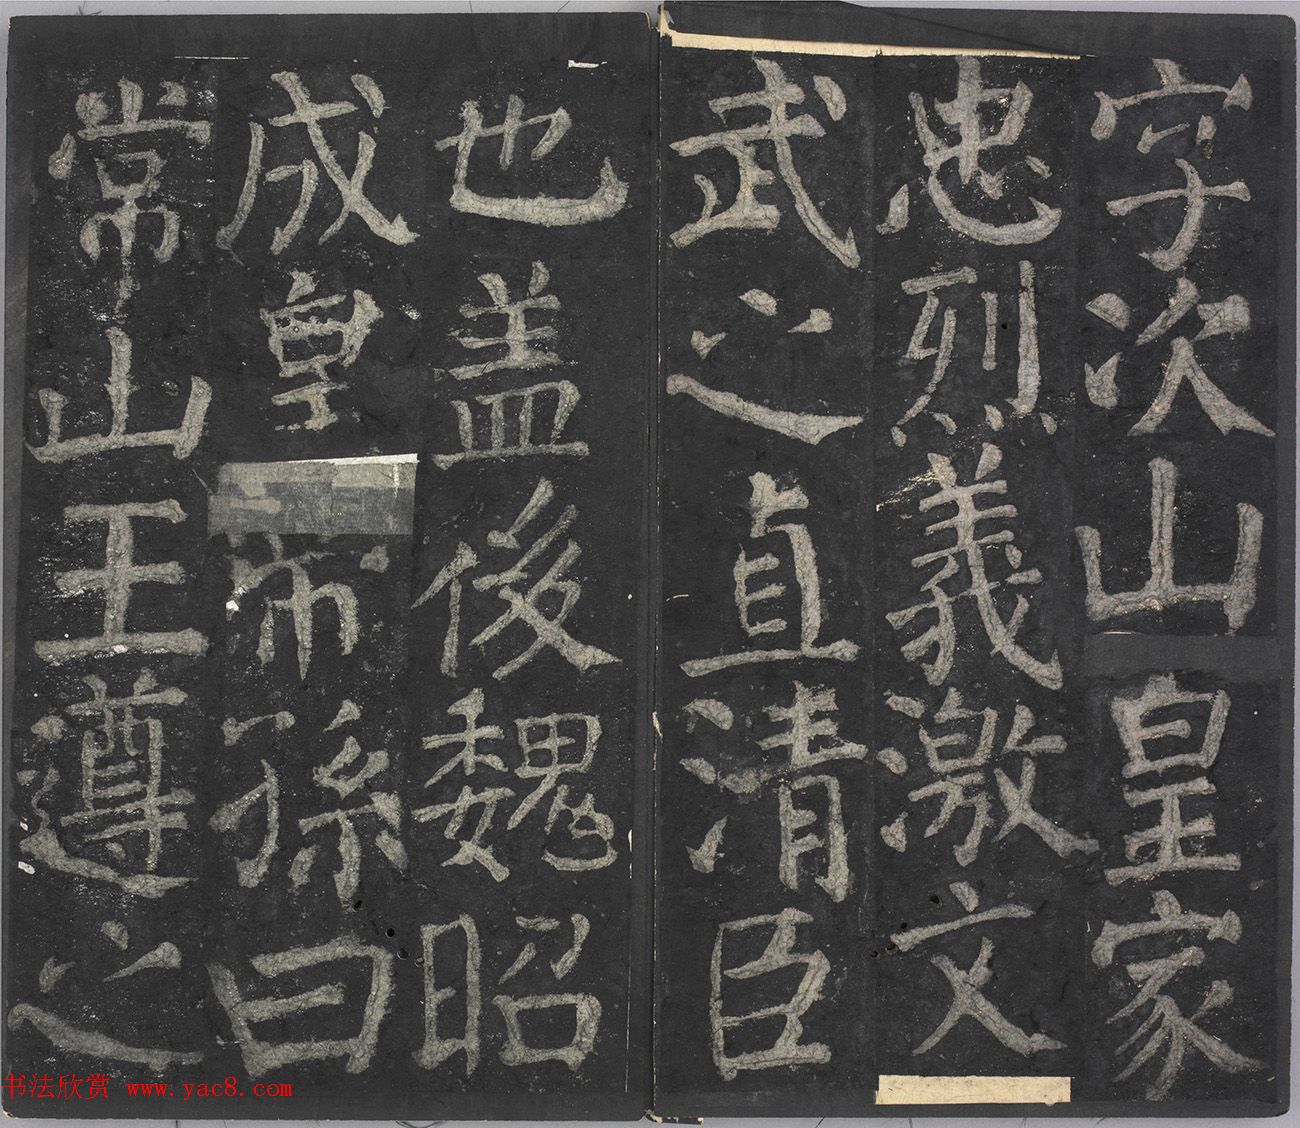 字次山皇家
忠烈義激文
武之直清臣
也盖後魏昭
成皇帝孫曰
常山王遵之
书法欣赏 www.yac8.com